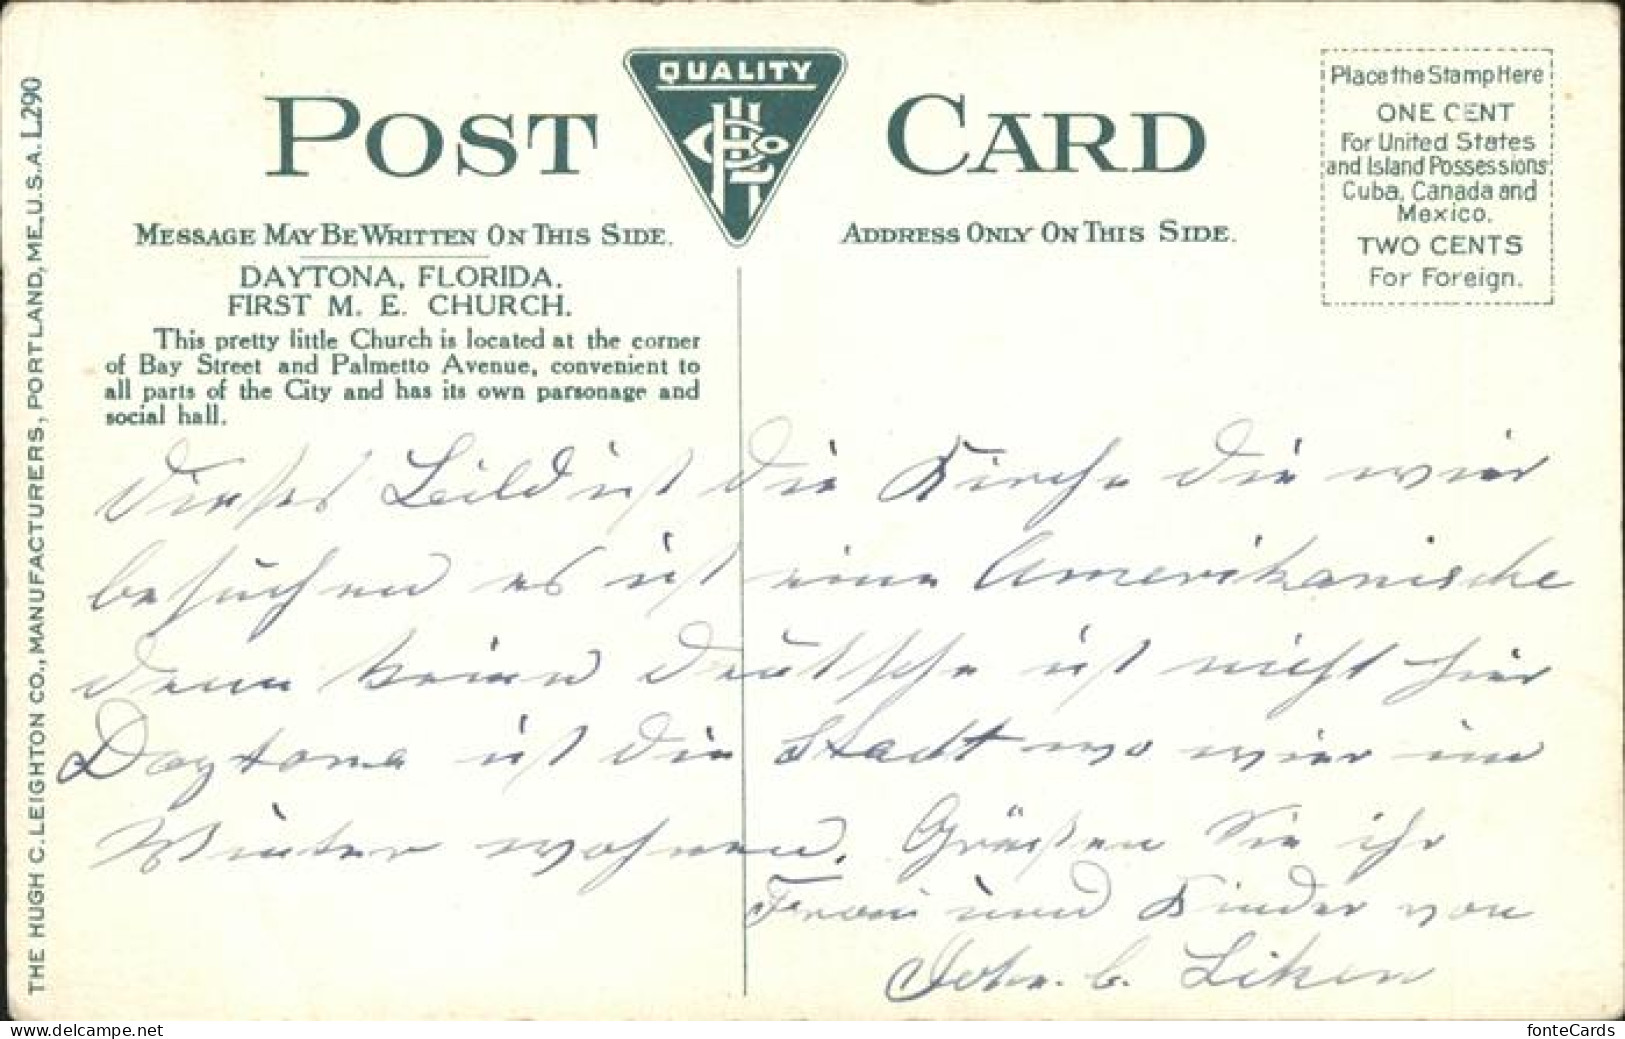 THE HUGH C. LEIGHTON CO., MANUFACTURERS, PORTLAND, ME., U.S.A. L290
POST CARD
QUALITY
HLCo
MESSAGE MAY BE WRITTEN ON THIS SIDE.
ADDRESS ONLY ON THIS SIDE.
Place the Stamp Here
ONE CENT
For United States
and Island Possessions
Cuba, Canada and
Mexico.
TWO CENTS
For Foreign.
DAYTONA, FLORIDA.
FIRST M. E. CHURCH.
This pretty little Church is located at the corner
of Bay Street and Palmetto Avenue, convenient to
all parts of the City and has its own parsonage and
social hall.
Dieses Bild ist die Kirche die wier
besuchen es ist eine Amerikanische
denn keine deutsche ist nicht hier
Daytona ist die Stadt wo wier im
Winter wohnen. Grüßen Sie ihr
Frau und Kinder von
John. C. Liken
www.delcampe.net
fonteCards